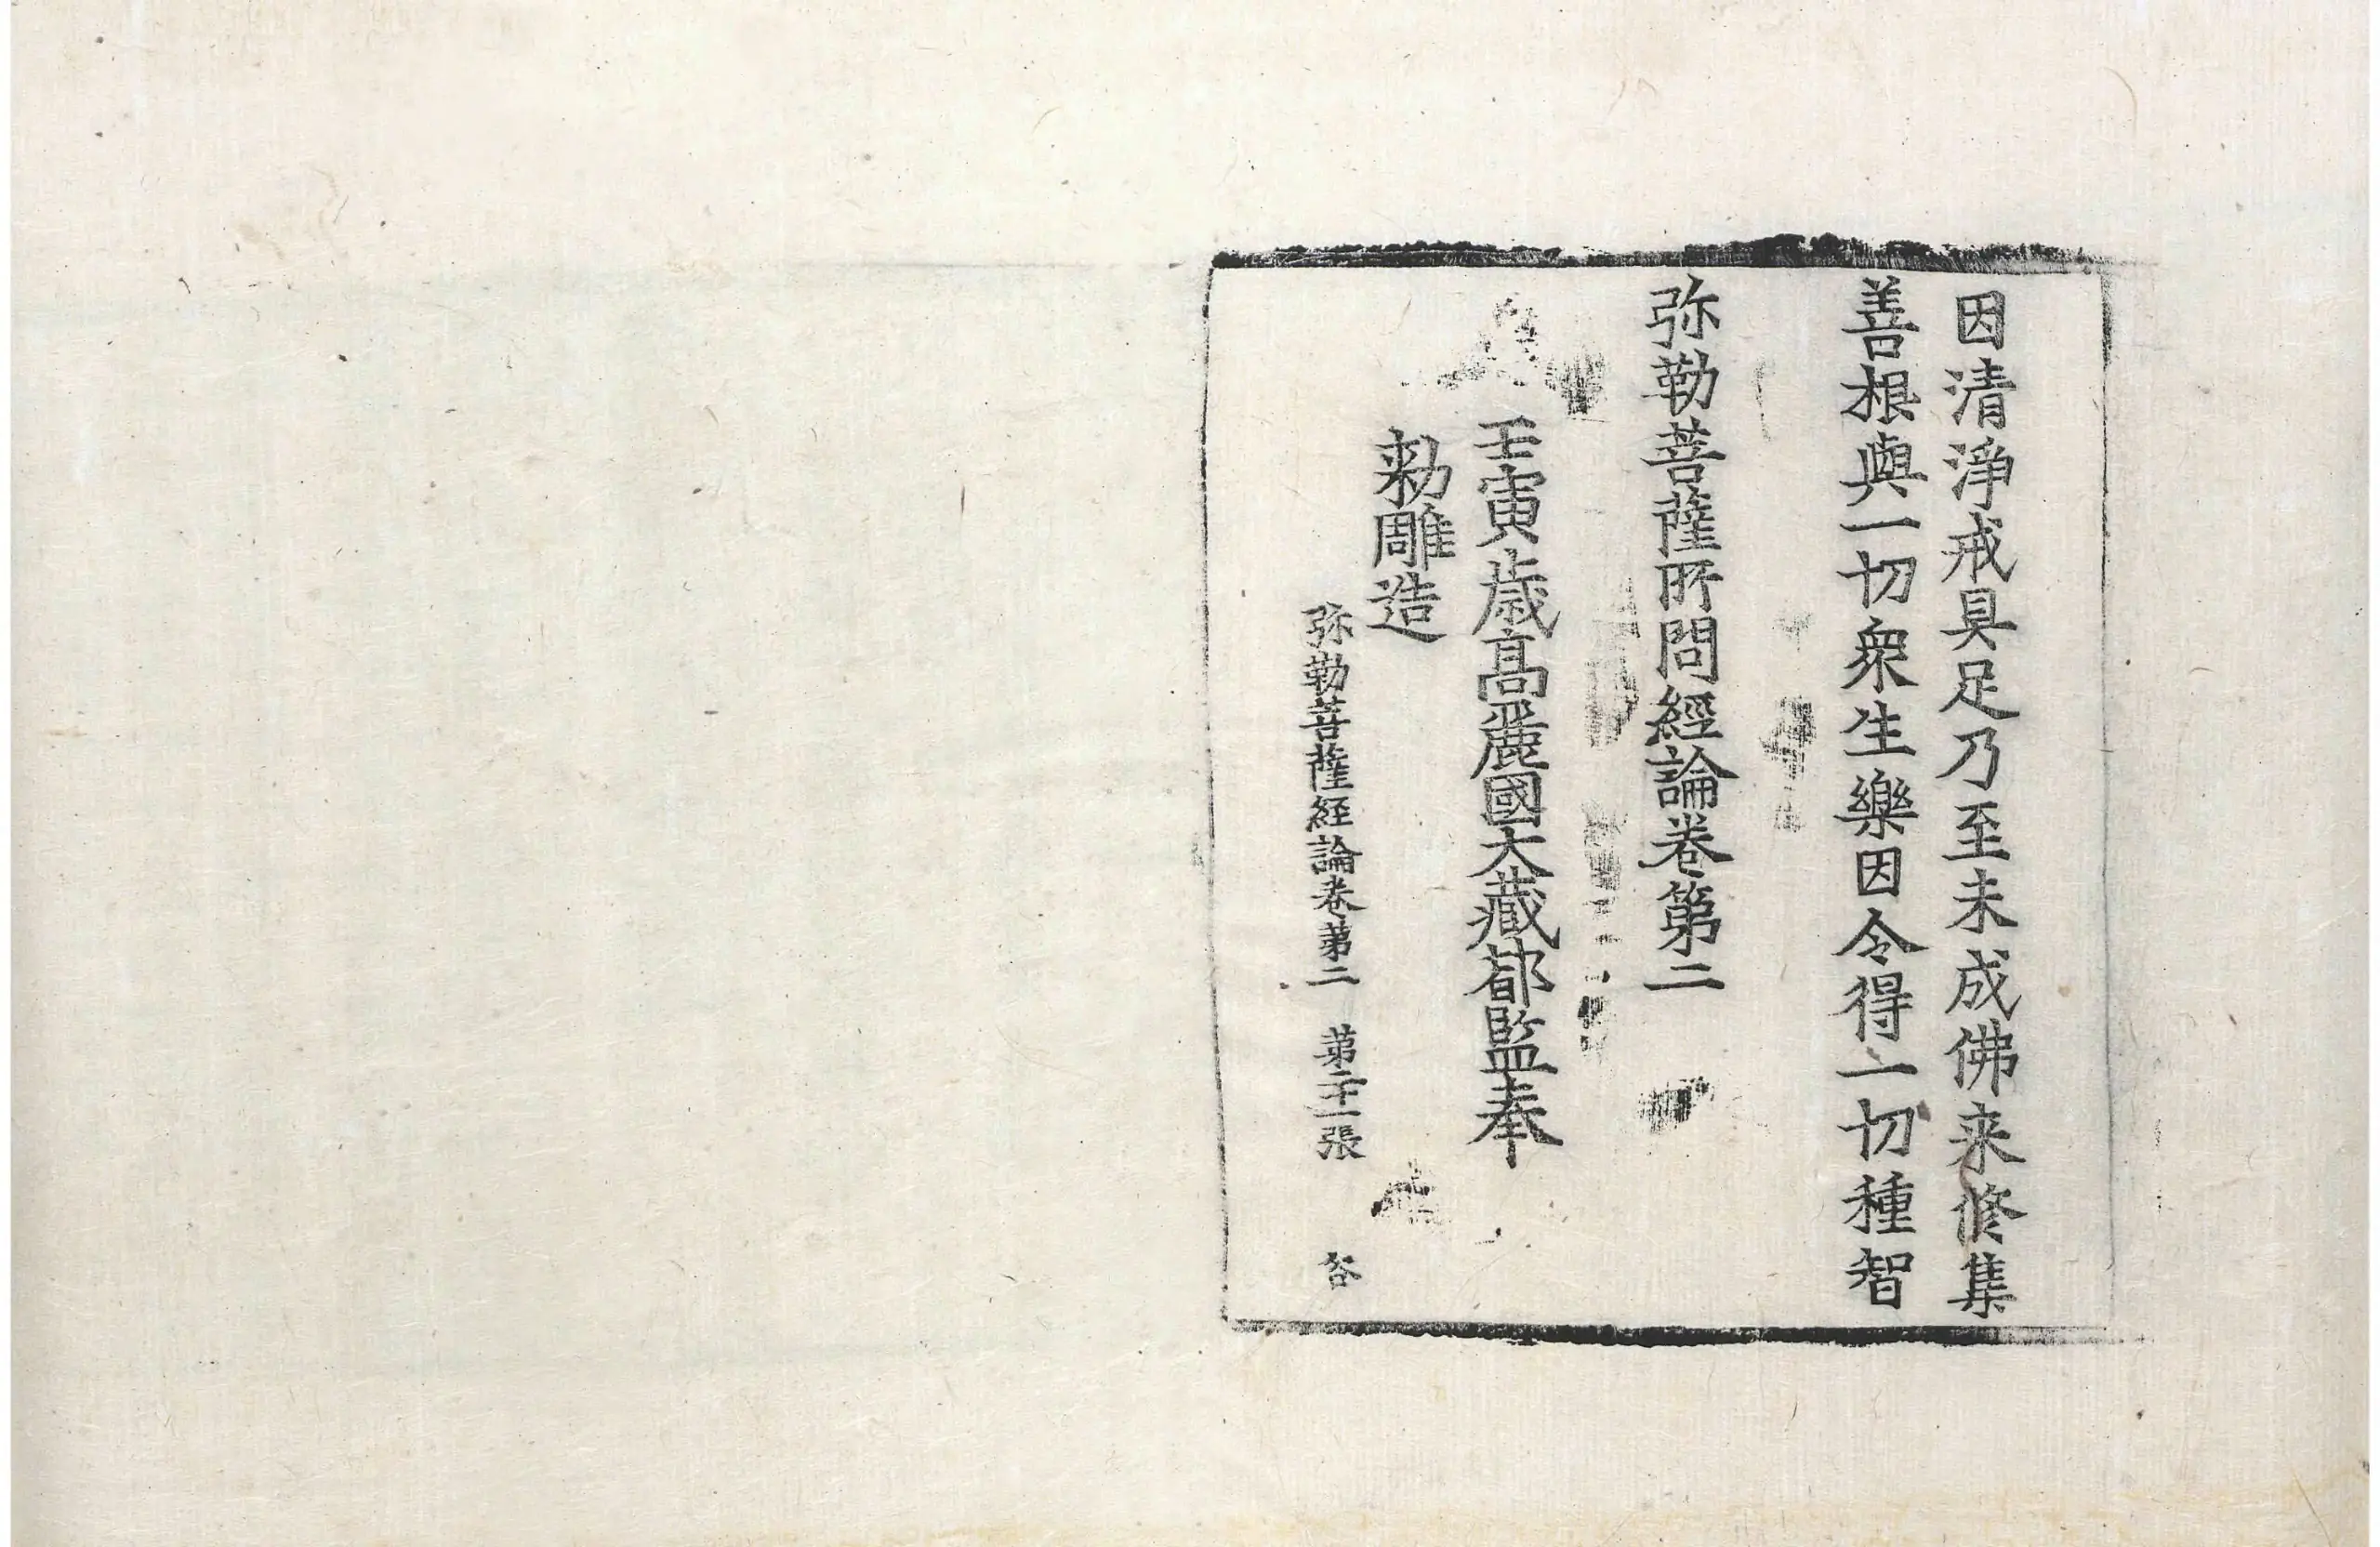 因清淨戒具足乃至未成佛来修集
善根與一切衆生樂因令得一切種智
弥勒菩薩所問經論卷第二
壬寅歲高麗國大藏都監奉
勑雕造
弥勒菩薩經論卷第二 第二十一張